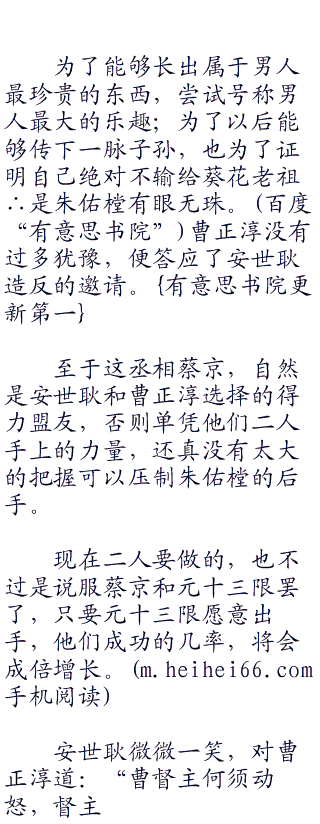 为了能够长出属于男人
最珍贵的东西，尝试号称男
人最大的乐趣；为了以后能
够传下一脉子孙，也为了证
明自己绝对不输给葵花老祖
∴是朱佑樘有眼无珠。(百度
“有意思书院”)曹正淳没有
过多犹豫，便答应了安世耿
造反的邀请。{有意思书院更
新第一}
至于这丞相蔡京，自然
是安世耿和曹正淳选择的得
力盟友，否则单凭他们二人
手上的力量，还真没有太大
的把握可以压制朱佑樘的后
手。
现在二人要做的，也不
过是说服蔡京和元十三限罢
了，只要元十三限愿意出
手，他们成功的几率，将会
成倍增长。(m.heihei66.com
手机阅读)
安世耿微微一笑，对曹
正淳道：“曹督主何须动
怒，督主